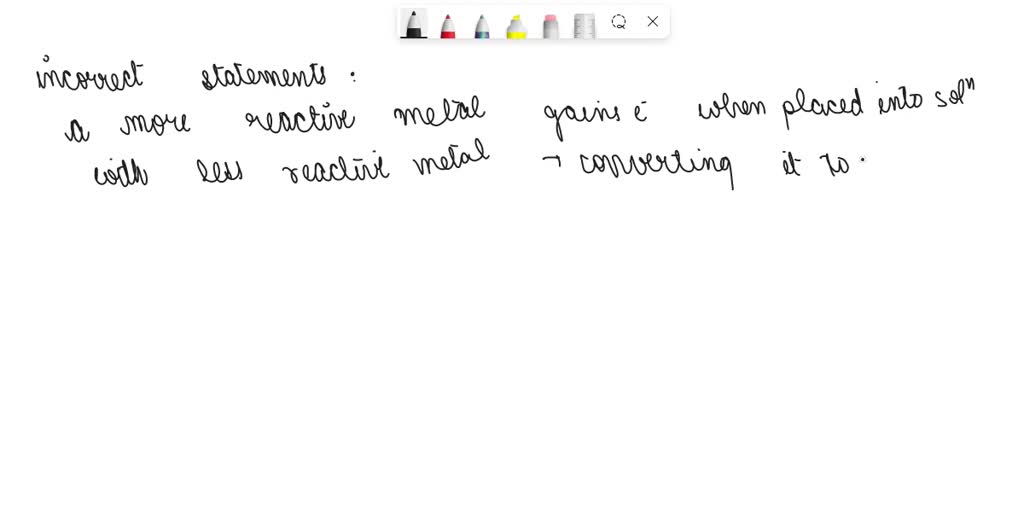 incorrect statements :
a more reactive metal gains e⁻ when placed into solⁿ
with less reactive metal → converting it to .